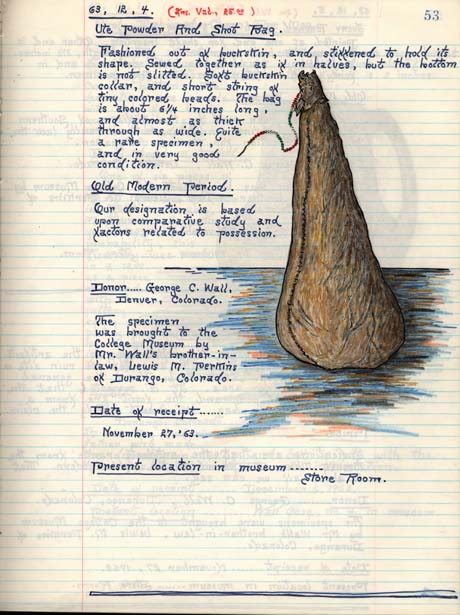 63, 12, 4. (Ins. Val. 25.00)
53
Ute Powder And Shot Bag.
Fashioned out of buckskin, and stiffened to hold its
shape. Sewed together as if in halves, but the bottom
is not slitted. Soft buckskin
collar, and short string of
tiny colored beads. The bag
is about 6 1/4 inches long,
and almost as thick
through as wide. Quite
a rare specimen,
and in very good
condition.
Old Modern Period.
Our designation is based
upon comparative study and
factors related to possession.
Donor..... George C. Wall.
Denver, Colorado.
The specimen
was brought to the
College Museum by
Mr. Wall's brother-in-
law, Lewis M. Perkins
of Durango, Colorado.
Date of receipt......
November 27, '63.
Present location in museum.......
Store Room.